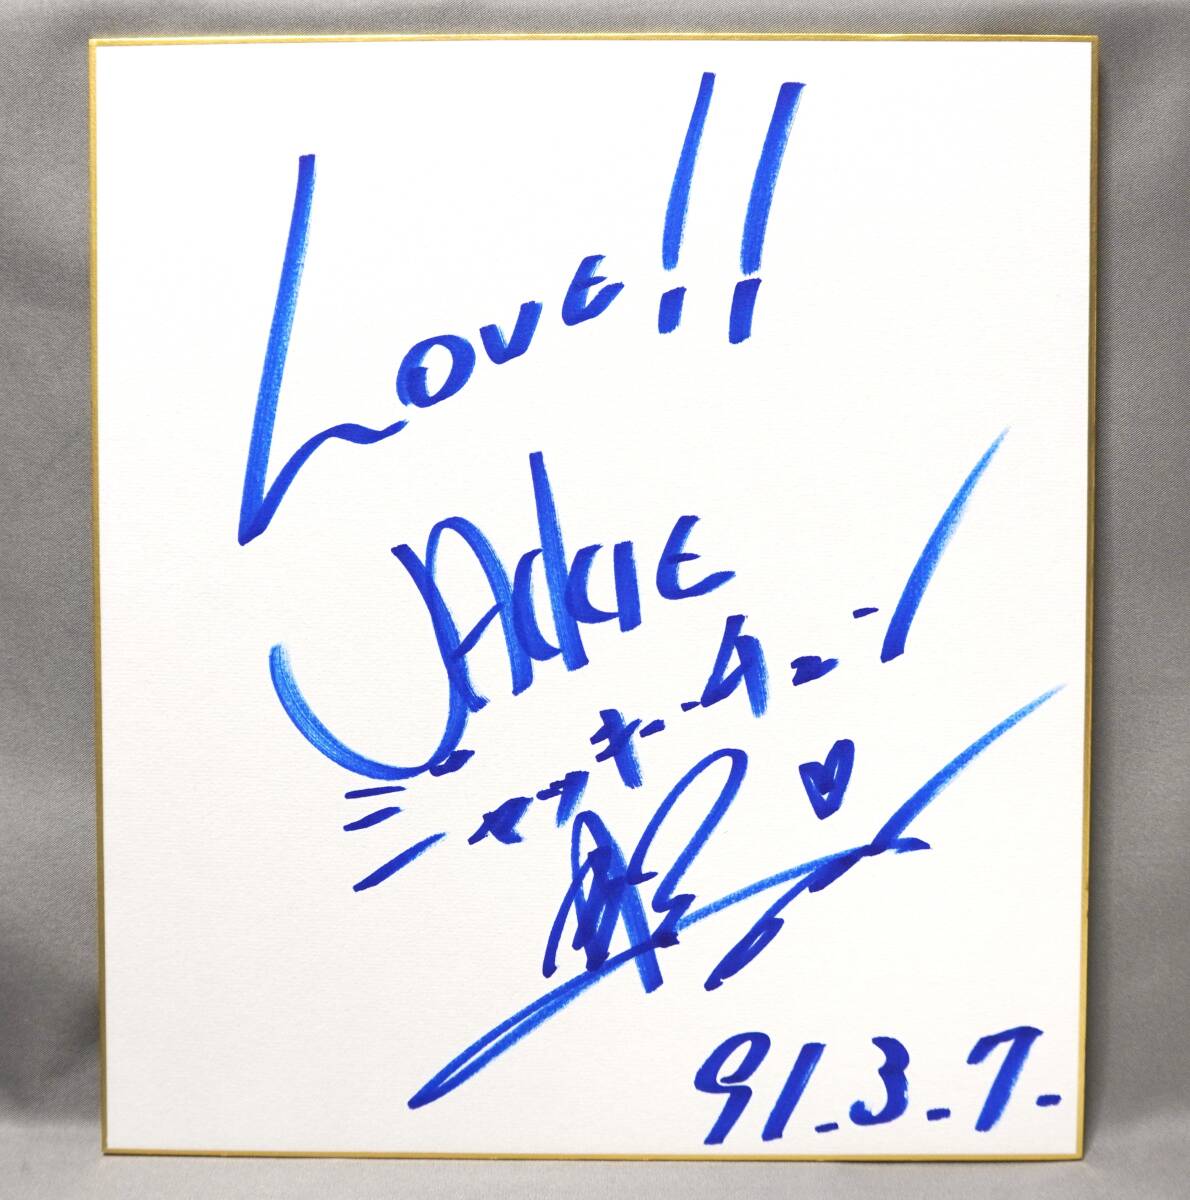 LOVE!!
JACKIE
ジャッキー・チェン
91.3.7.